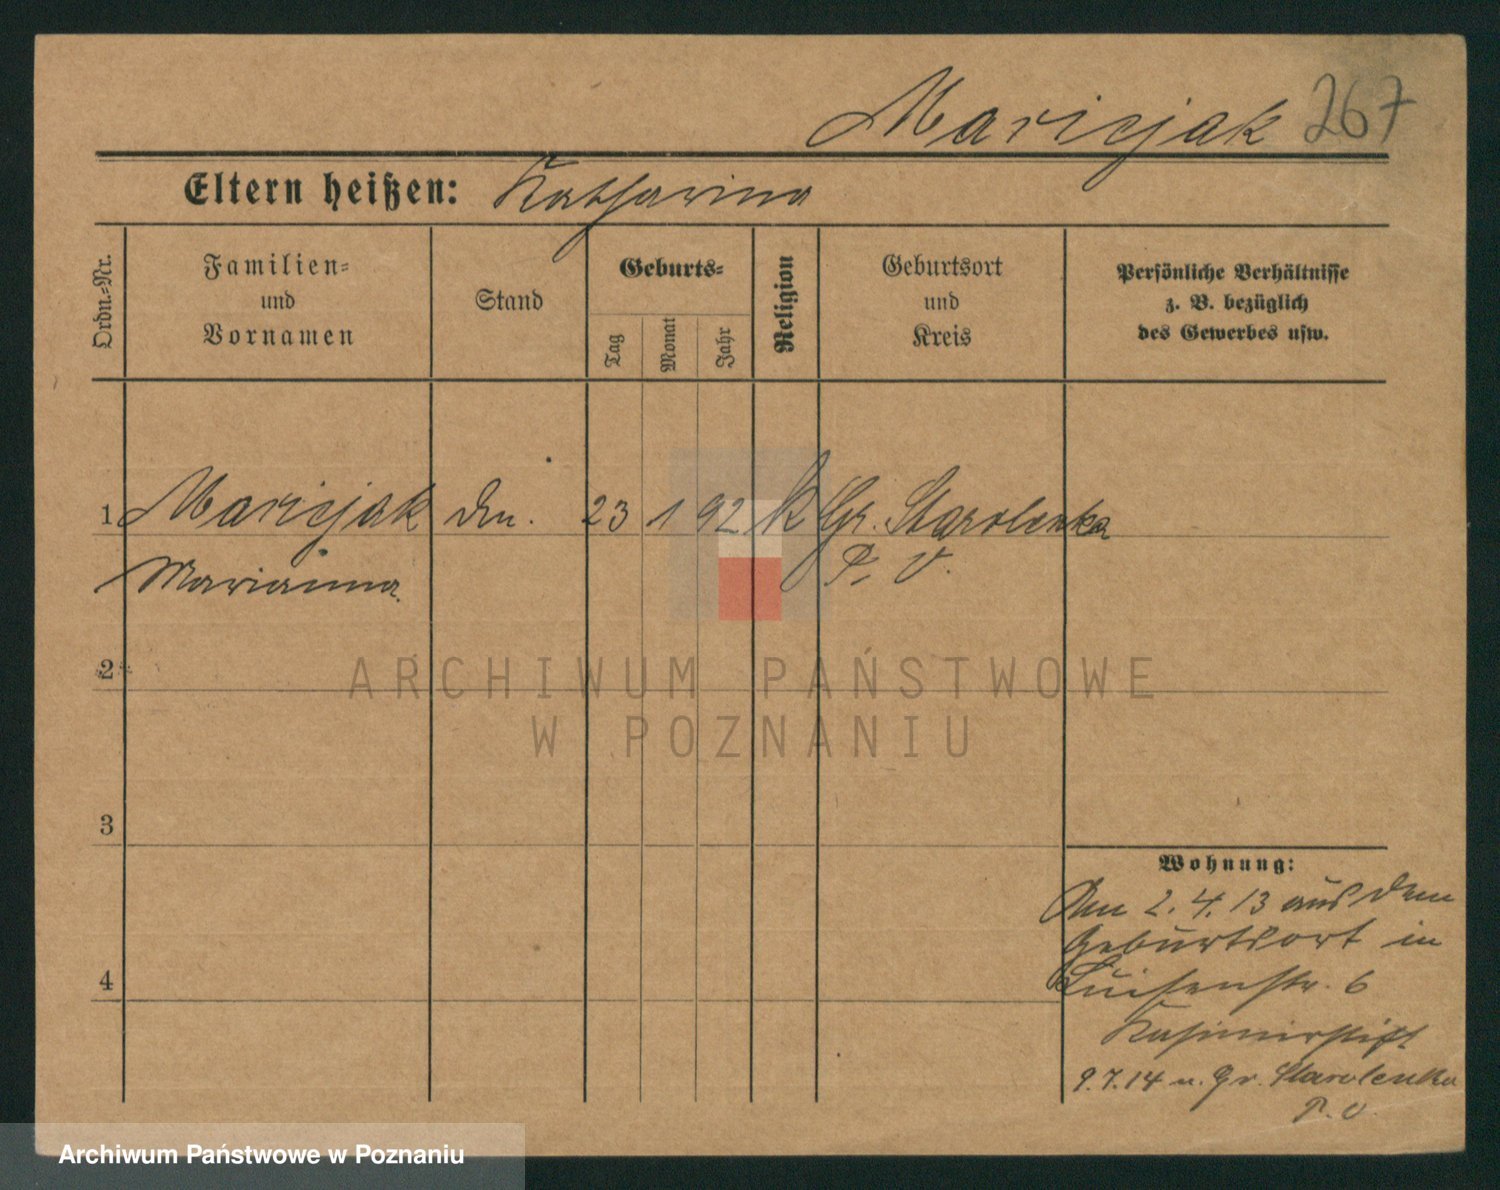 Maricjak 267
Eltern heißen: Katharina
Ordn.-Nr.
Familien-
und
Vornamen
Stand
Geburts-
Tag
Monat
Jahr
Religion
Geburtsort
und
Kreis
Persönliche Verhältnisse
z. B. bezüglich
des Gewerbes usw.
1 Maricjak 23 1 92 k Gr. Starolenka
Marianna P. O.
2
3
4
Wohnung:
Den 2.4.13 aus dem
Geburtsort in
Luisenstr. 6
9.7.14 n. Gr. Starolenka
P. O.
ARCHIWUM PAŃSTWOWE
W POZNANIU
Archiwum Państwowe w Poznaniu